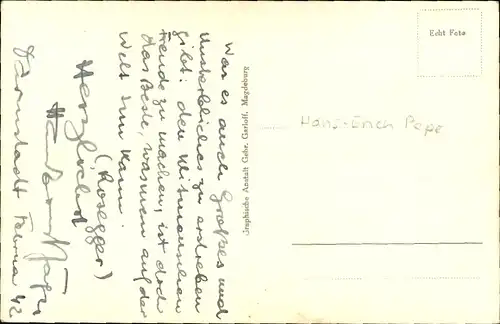 Was es auch Großes und
Unsterbliches zu erstreben
gibt: den Mitmenschen
Freude zu machen, ist doch
das Beste, was man auf der
Welt tun kann.
(Rosegger)
Herzlichst
Darmstadt Februar 42
Graphische Anstalt Gebr. Garloff, Magdeburg
Echt Foto
Hans-Erich Pape